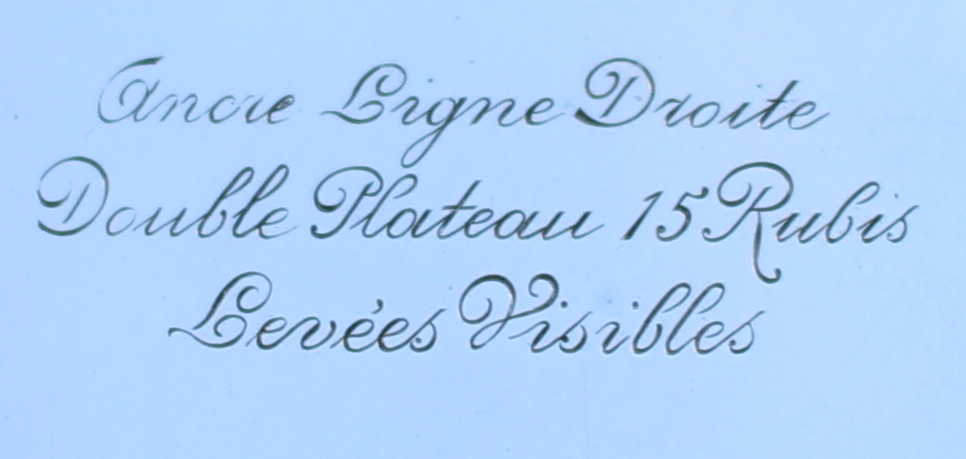 Ancre Ligne Droite
Double Plateau 15 Rubis
Levées Visibles